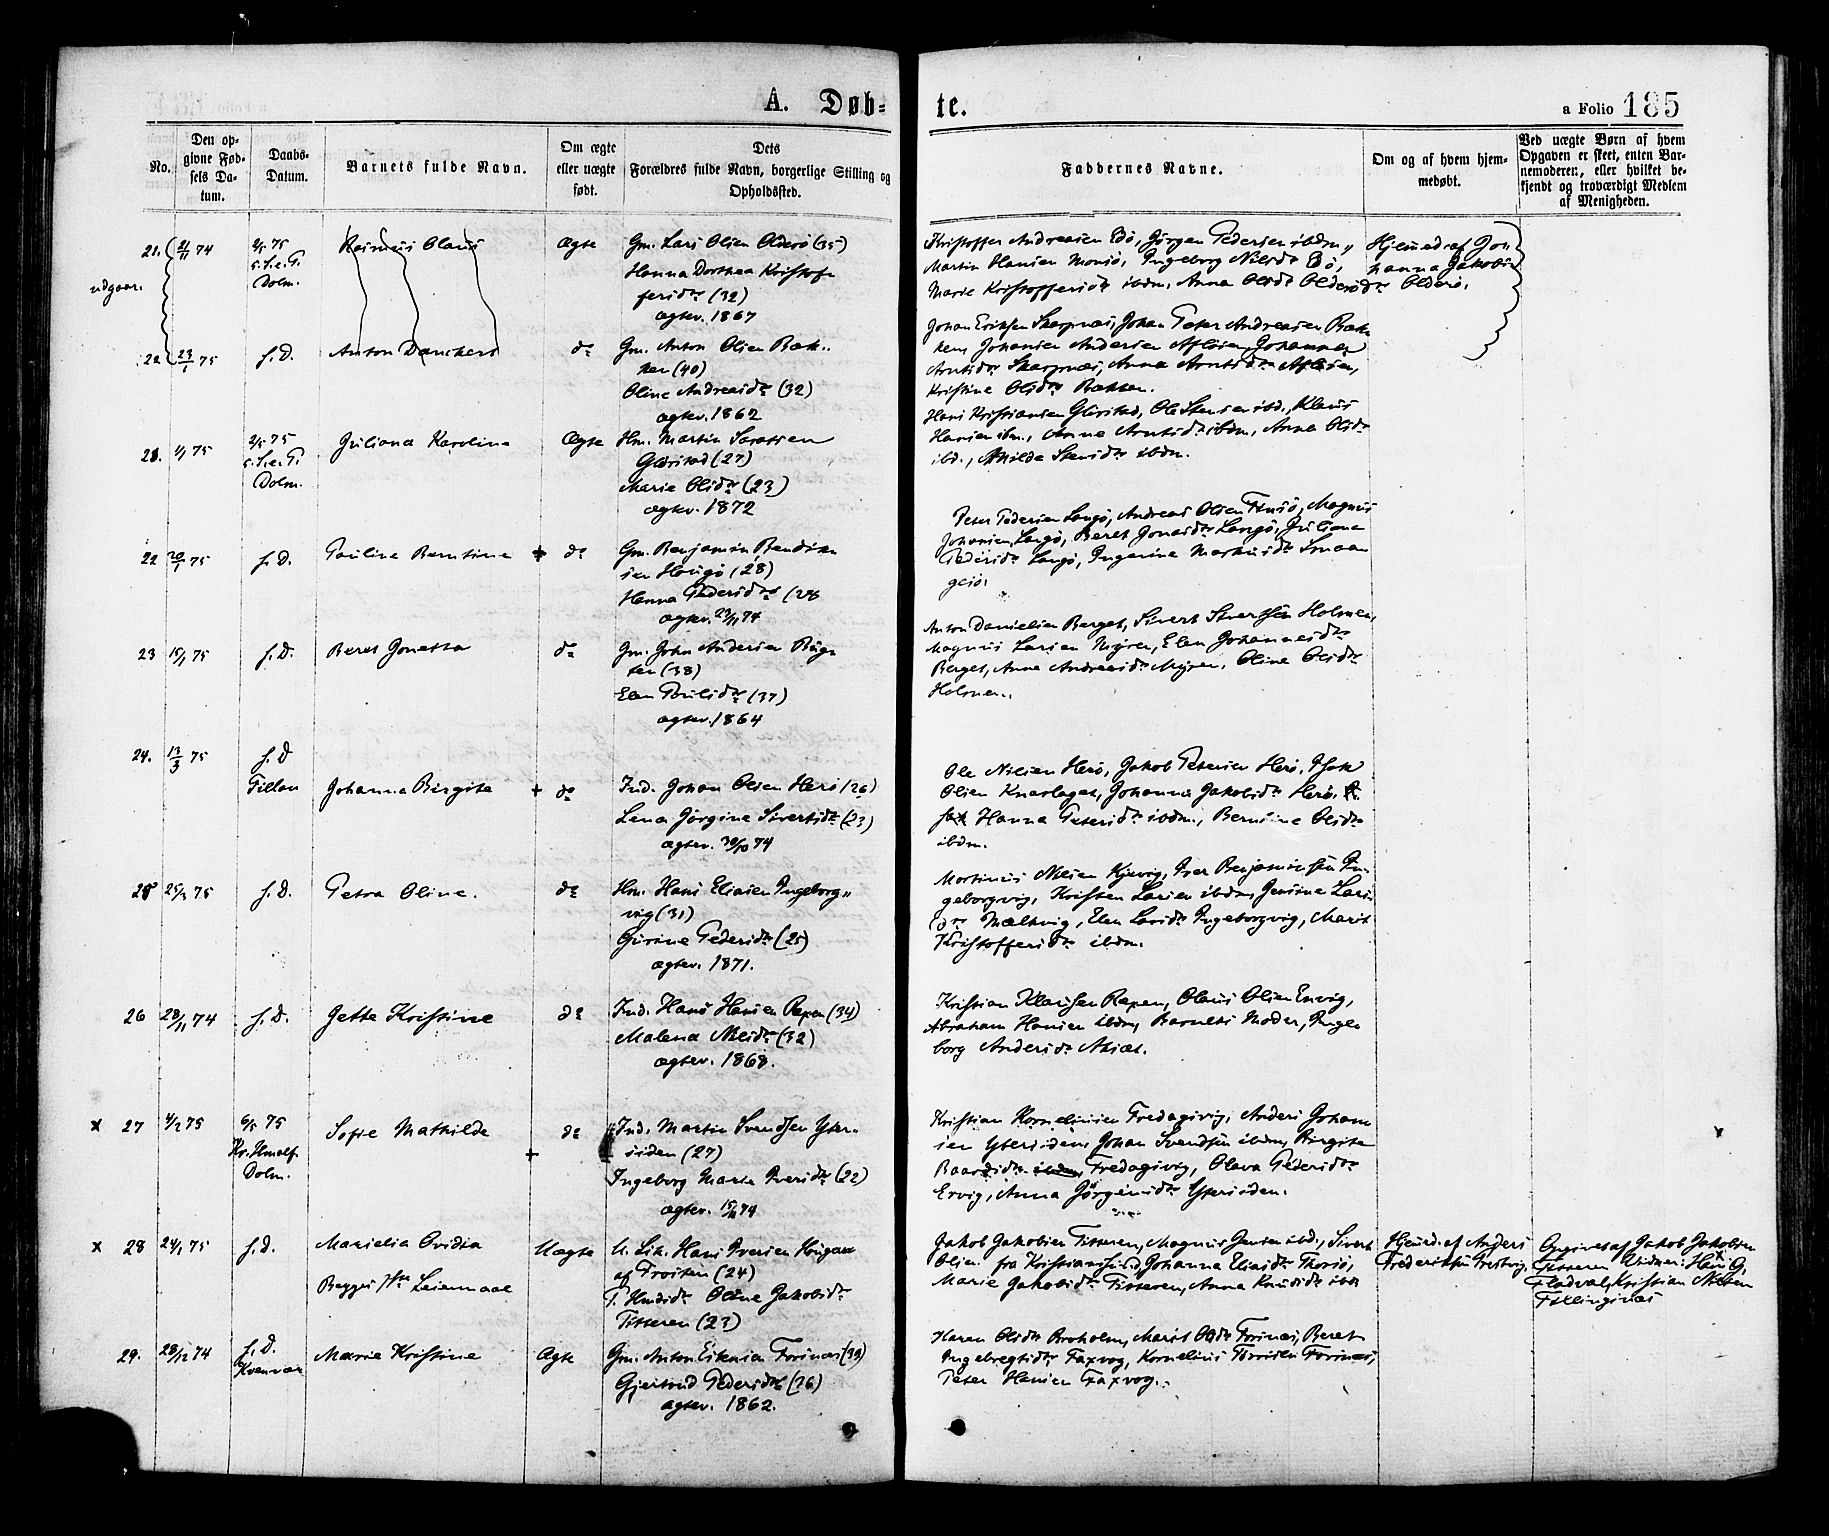 A. Døb-
te.
a Folio 185
No.
Den op-
givne Fød-
sels Da-
tum.
Daabs-
Datum.
Barnets fulde Navn.
Om ægte
eller uægte
født.
Dets
Forældres fulde Navn, borgerlige Stilling og
Opholdssted.
Faddernes Navne.
Om og af hvem hjem-
medøbt.
Ved uægte Børn af hvem
Opgaven er skeet, enten Bar-
nemoderen, eller hvilket be-
kjendt og troværdigt Medlem
af Menigheden.
21. 21/11 74
2/5 75
S. e. P.
Dolm.
udgaar.
Rasmus Olaus
Ægte
Gm. Lars Olsen Olderø (35)
Hanna Dorthea Kristof-
fersdtr (32)
ægtev. 1867
Kristoffer Andreasen Edø, Jørgen Pedersen ibdm,
Martin Hansen Monsø, Ingeborg Nilsdtr Edø,
Marie Kristoffersdtr ibdm, Anna Olsdtr Olderø.
Hjemmed. af Jo-
hanna Jakobsdtr Olderø.
22 23/1 75
s. D.
Anton Danckert
do
Gm. Anton Olsen Bæk-
ken (40)
Oline Andreasdtr (32)
ægtev. 1862
Johan Eriksen Skarpnæs, Johan Peter Andreasen Bæk-
ken, Johanses Andersen Afløien, Johanna
Arntsdtr Skarpnæs, Anna Arntsdtr Afløien,
Kristine Olsdtr Bækken.
21. 1/1 75
2/5 75
S. e. P.
Dolm.
Juliana Karoline
Ægte
Hm. Martin
Gjørstad (27)
Marie Olsdtr (23)
ægtev. 1872
Hans Kristiansen Gjørstad, Ole Stensen ibd., Klaus
Hansen ibm., Anne Arntsdtr ibdm, Anna Olsdtr
ibd., Mhilde Stensdtr ibdm.
22 20/1 75
s. D.
Pauline Berntine +
do
Gm. Benjamin Bendik-
sen Haugø (28)
Hanna Pedersdtr (28
ægtev. 23/11 74
Peter Pedersen Langø, Andreas Olsen, Magnus
Johansen Langø, Beret Jonasdtr Langø, Juliane
Pedersdtr Langø, Ingerine Markusdtr Smaan-
gesø.
23 15/1 75
s. D.
Beret Jonetta
do
Gm. John Andersen Bug-
ten (38)
Elen Poulsdtr (37)
ægtev. 1864
Anton Danielsen Berget, Sivert Sivertsen Holmen,
Magnus Larsen Myren, Elen Johannesdtr
Berget, Anne Andreasdtr Myren, Oline Olsdtr
Holmen.
24. 13/3 75
s. D
Fillan
Johanna Birgite +
do
Ind. Johan Olsen Herø (26)
Lena Jørgine Sivertsdtr (23)
ægtev. 30/10 74
Ole Nilsen Herø, Jakob Petersen Herø, Isak
Olsen Knarlaget, Johanna Jakobsdtr Herø,
Hanna Petersdtr ibdm., Berntine Olsdtr
ibdm.
25 25/2 75
s. D.
Petra Oline.
do
Hm. Hans Eliasen Ingeborg-
vig (31)
Gurine Pedersdtr (25)
ægtev. 1871.
Martinus Nilsen Kjervig, Iver Benjaminsen In-
geborgvig, Kristen Larsen ibdm, Jensine Lars-
dtr Mælkvig, Elen Larsdtr Ingeborgvig, Marit
Kristoffersdtr ibdm.
26 28/11 74
s. D.
Jette Kristine
do
Ind. Hans Hansen Repen (34)
Malena Nilsdtr (32)
ægtev. 1868.
Kristian Klausen Repen, Olaus Olsen Ervig,
Abraham Hansen ibdm, Barnets Moder, Inge-
borg Andersdtr
x 27 4/2 75
6/5 75
Kr. Hmelf.
Dolm.
Sofie Mathilde +
do
Ind. Martin Svendsen Yter-
siden (27)
Ingeborg Marta Iversdtr (22)
ægtev. 15/11 74
Kristian Korneliusen Fredagsvig, Anders Johan-
sen Ytersiden, Johan Svendsen ibdm, Birgite
Baardsdtr ibdm, Fredagsvig, Olava Pedersdtr
Ervig, Anna Jørgensdtr Ytersiden.
x 28 24/1 75
s. d.
Marielia Ovidia
Begges 1ste Leiermaal
Uægte
U. Sik. Hans Iversen Haugan
af Frosten (24)
P. Oline Jakobsdtr
Titteren (23)
Jakob Jakobsen Titteren, Magnus Jensen ibd., Sivert
Olsen fra Kristianssund, Johanna Eliasdtr Thorsø,
Marie Jakobsdtr Titteren, Anna Knudsdtr ibdm
Hjemmed. af Anders
Frederiksen
Opgivet af Jakob Jakobsen
Titteren Vidner: Hans G.
Fladval, Kristian Nilsen
Fillingsnæs
29. 28/12 74
s. D.
Kvenvær
Marie Kristine
Ægte
Gm. Anton Forsnæs (39)
Gjertrud Pedersdtr (36)
ægtev. 1862.
Karen Olsdtr Broholm, Marit Olsdtr Forsnæs, Beret
Ingebregtsdtr Faxvog, Kornelius Forsnæs,
Peter Hansen Faxvog.